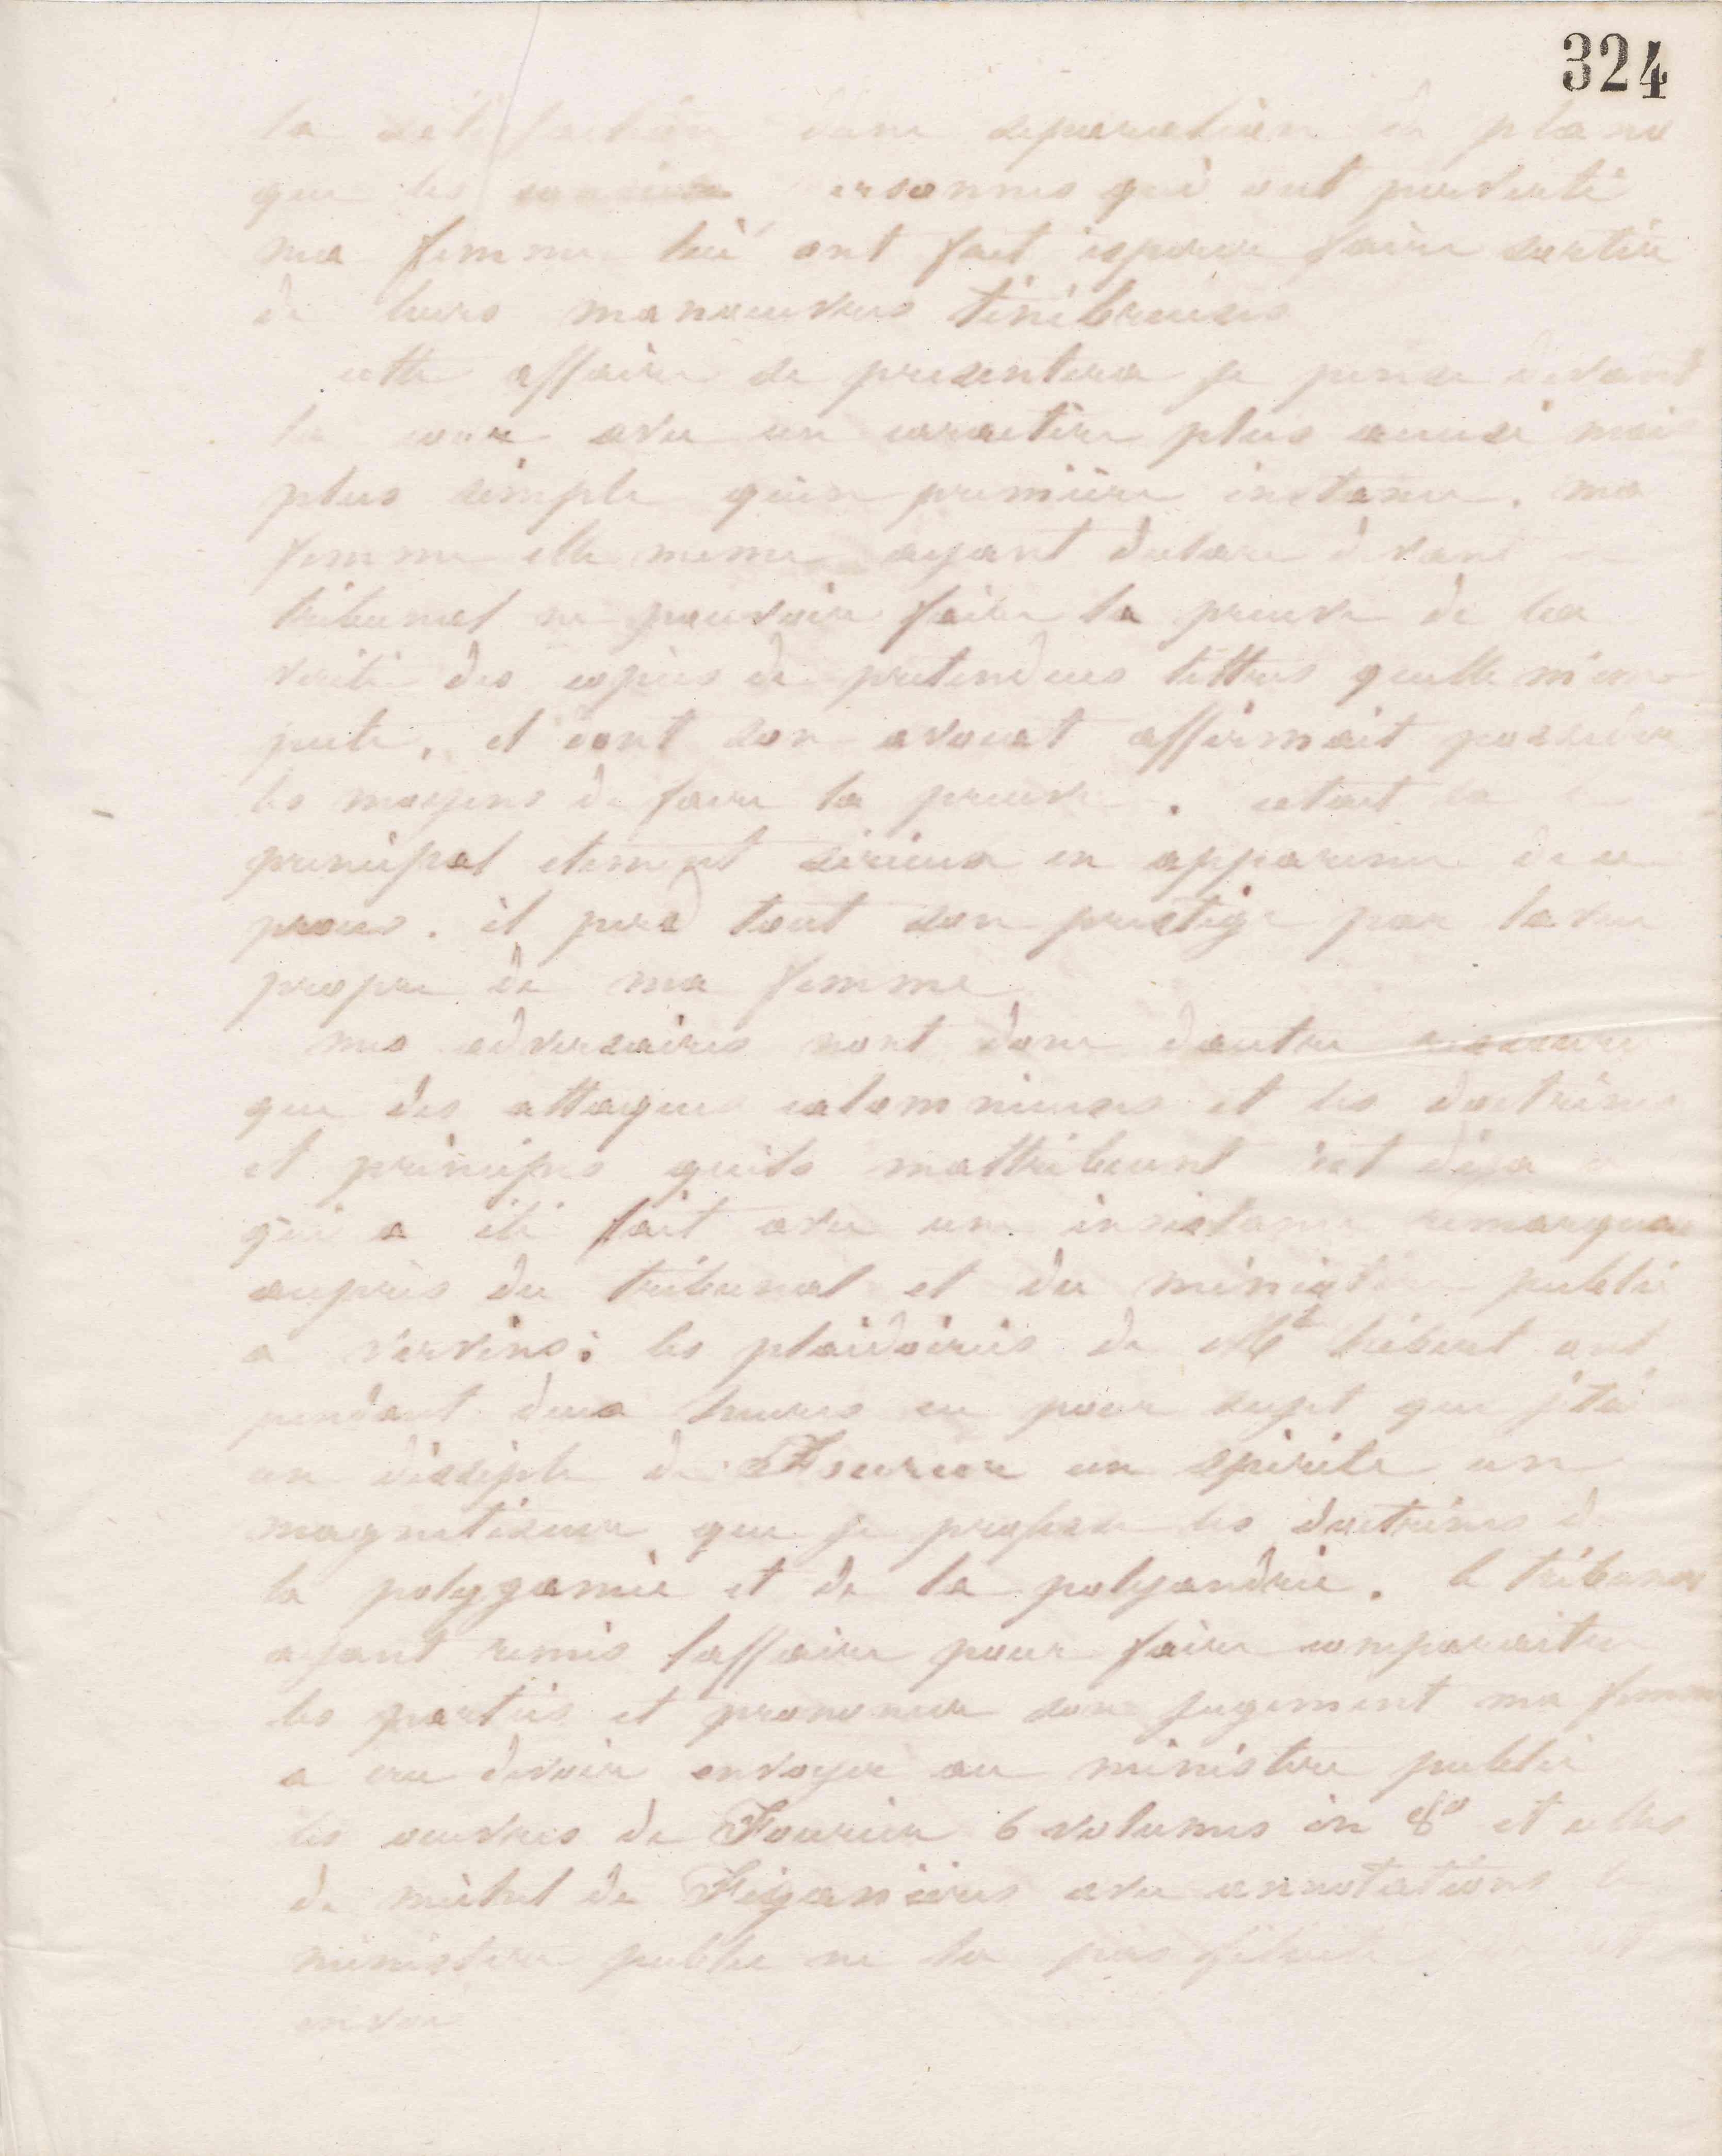 324
la satisfaction dune separation de plans
que les personnes qui ont perverti
ma femme lui ont fait esperer faire sortir
de leurs manoeuvres ténébreuses
cette affaire se presentera je pense devant
la cour avec un caractère plus accusé mais
plus simple quen première instance. ma
femme elle meme ayant declare devant le
tribunal ne pouvoir faire la preuve de la
verité des copies de pretendues lettres quelle mim-
pute, et dont son avocat affirmait posseder
les moyens de faire la preuve. cetait la le
principal element serieux en apparence de ce
proces. il perd tout son prestige par laveu
propre de ma femme
mes adversaires nont donc dautre ressource
que des attaques calomnieuses et les doctrines
et principes quils mattribuent cest deja ce
qui a été fait avec une insistance remarquable
auprès du tribunal et du ministère public
a vervins: les plaidoiries de Me ont
pendant deux heures eu pour sujet que jétai
un disciple de Fourier un spirite un
magnetiseur que je professe les doctrines de
la polygamie et de la polyandrie. le tribunal
ayant remis laffaire pour faire comparaitre
les parties et prononcer son jugement ma femme
a cru devoir envoyer au ministere public
les oeuvres de Fourier 6 volumes in 8° et celles
de michel de Figanières avec annotations le
ministere public ne la pas
envoi